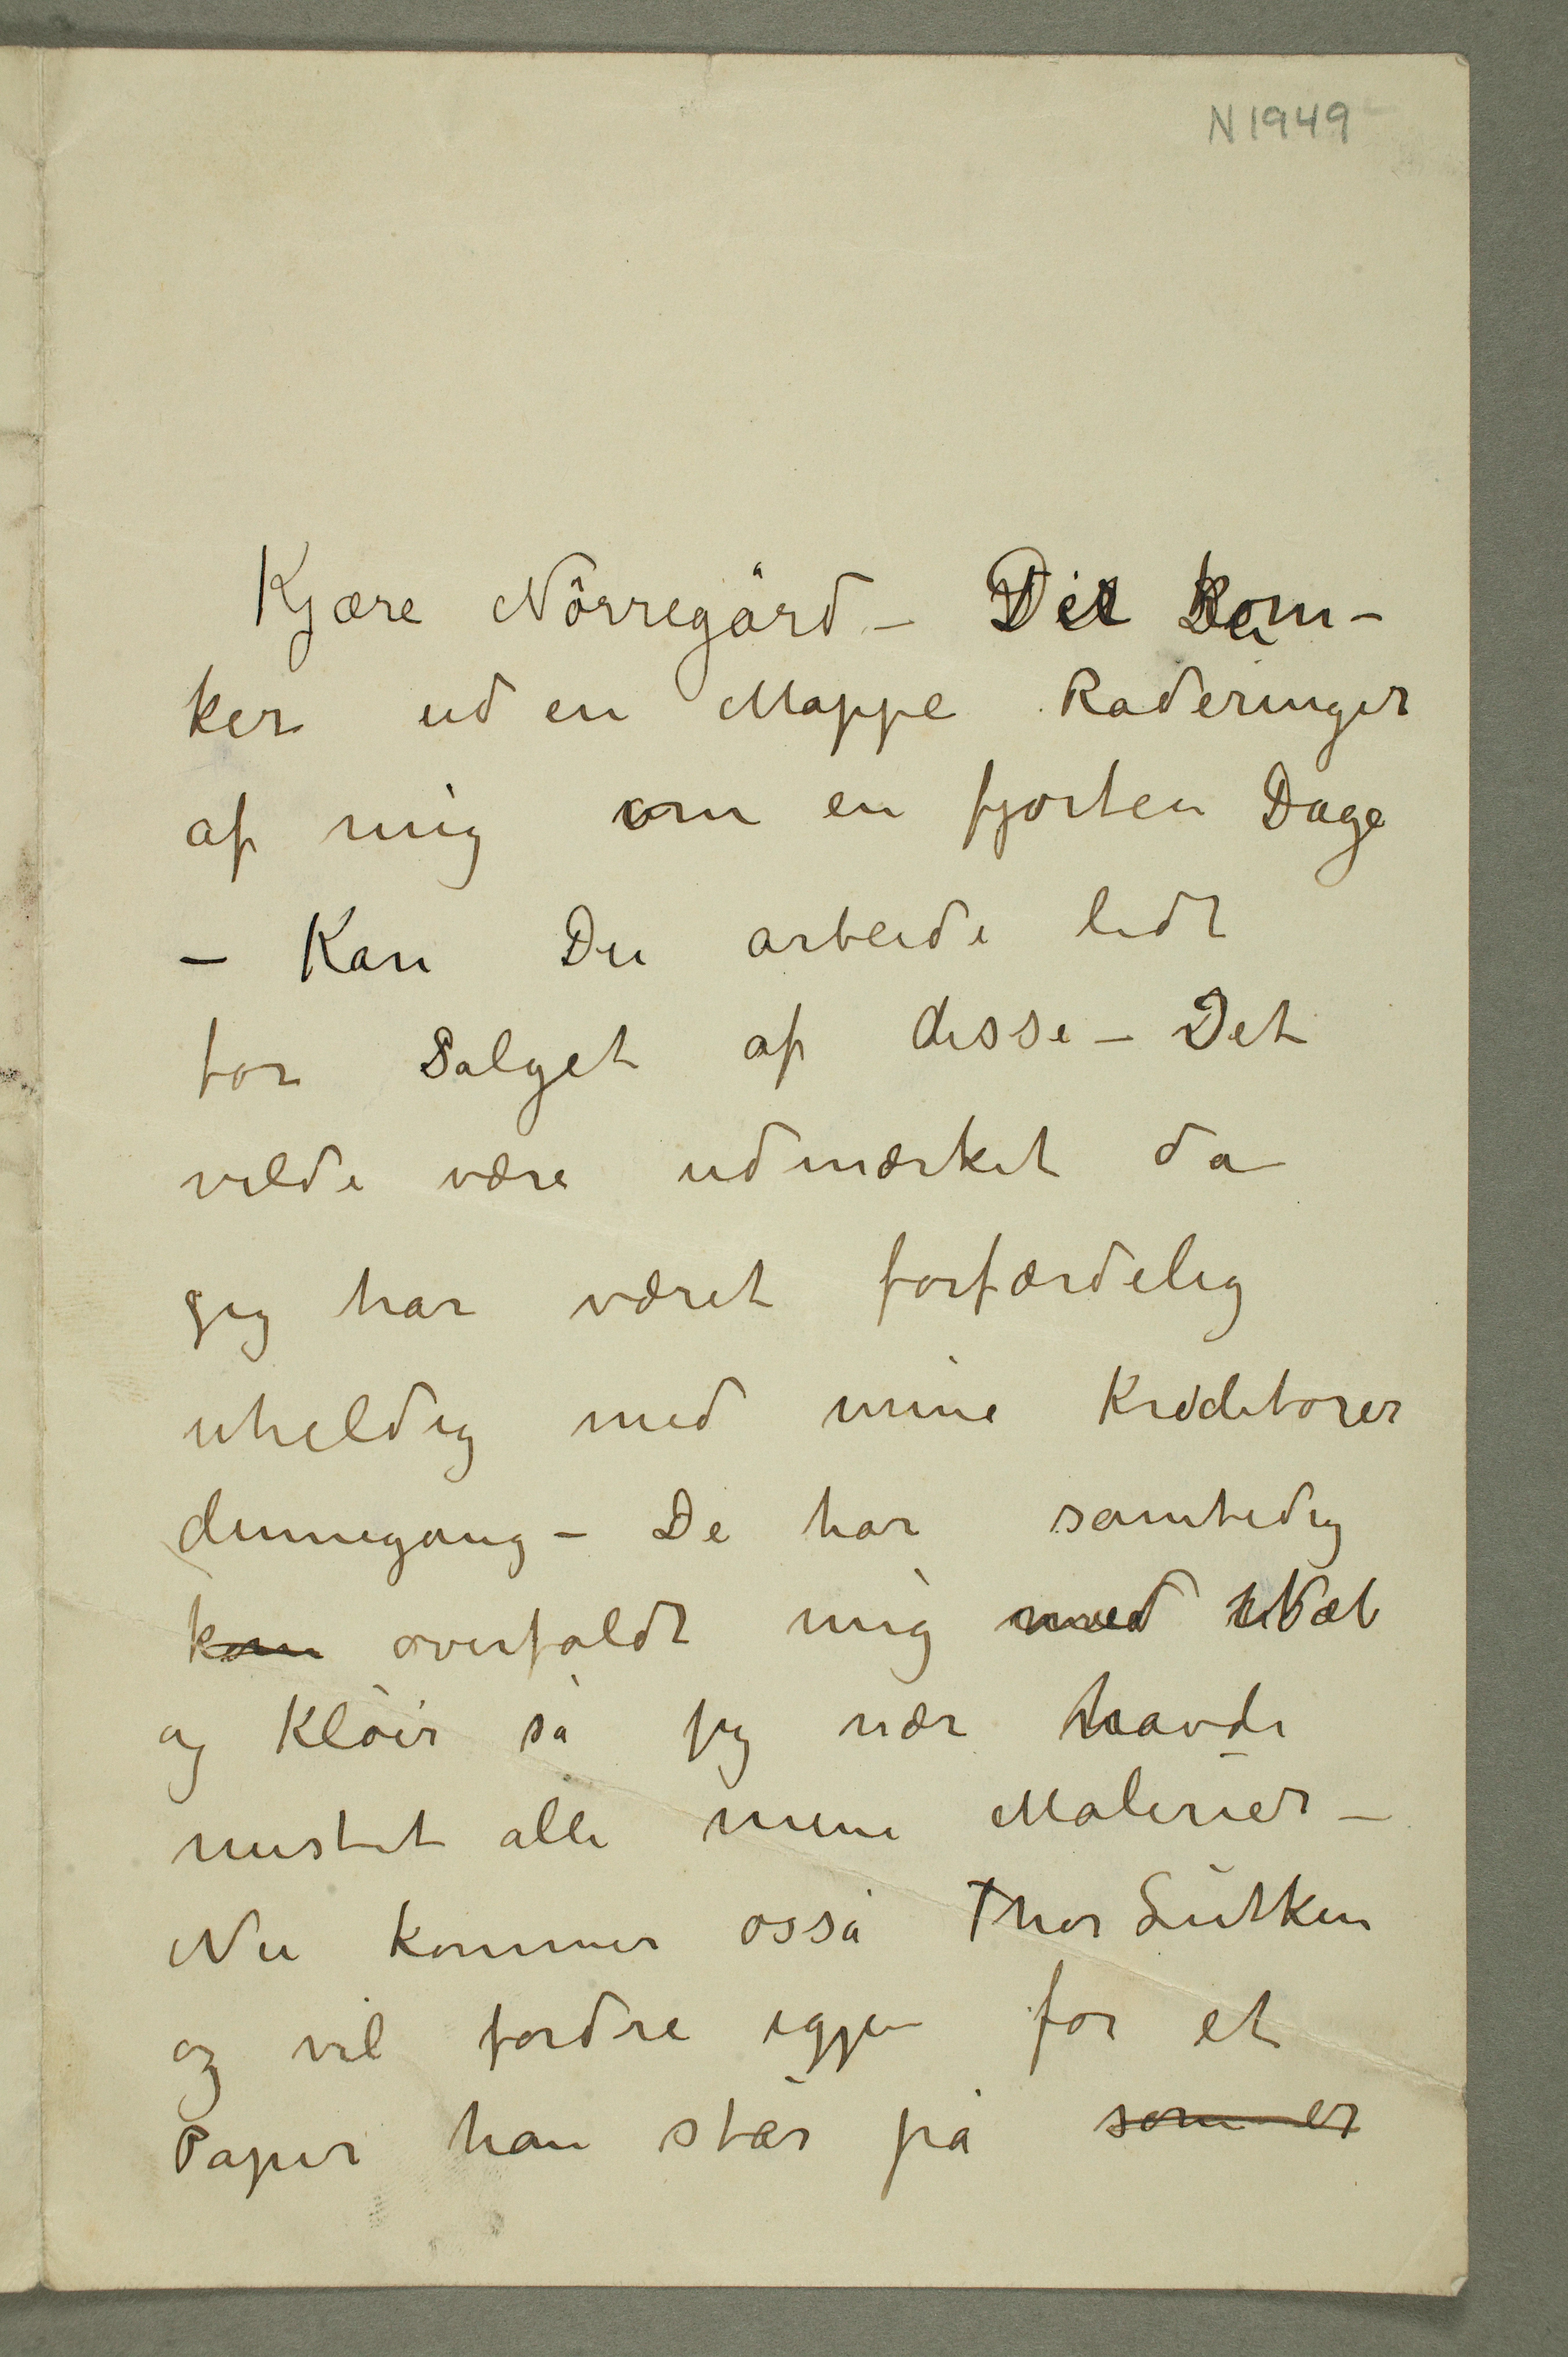 N1949
Kjære Nörregård – Det kom-
ker ud en Mappe Raderinger
af mig om en fjorten Dage
– Kan Du arbeide lidt
for Salget af disse – Det
vilde være udmærket da
jeg har været forfærdelig
uheldig med mine Kreditorer
dennegang – De har samtidig
kom overfaldt mig med Næb
og Klöer så jeg nær havde
mistet alle mine Malerier –
Nu kommer osså Thor Lütken
og vil fordre igjen for et
Papir han står på som er